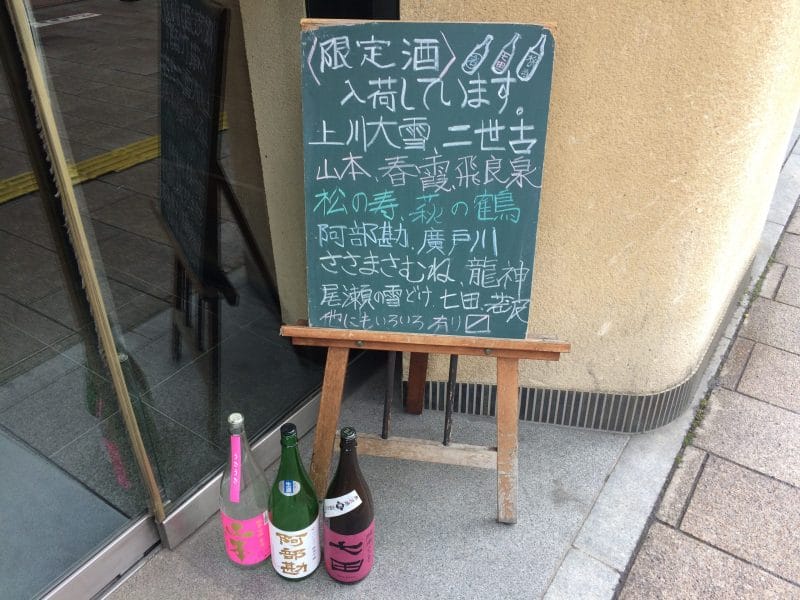 〈限定酒〉
入荷しています。
上川大雪、二世古
山本、春霞、飛良泉
松の寿、萩の鶴
阿部勘、廣戸川
ささまさむね、龍神
尾瀬の雪どけ、七田、若波
他にもいろいろ有り〼
阿部勘
七田